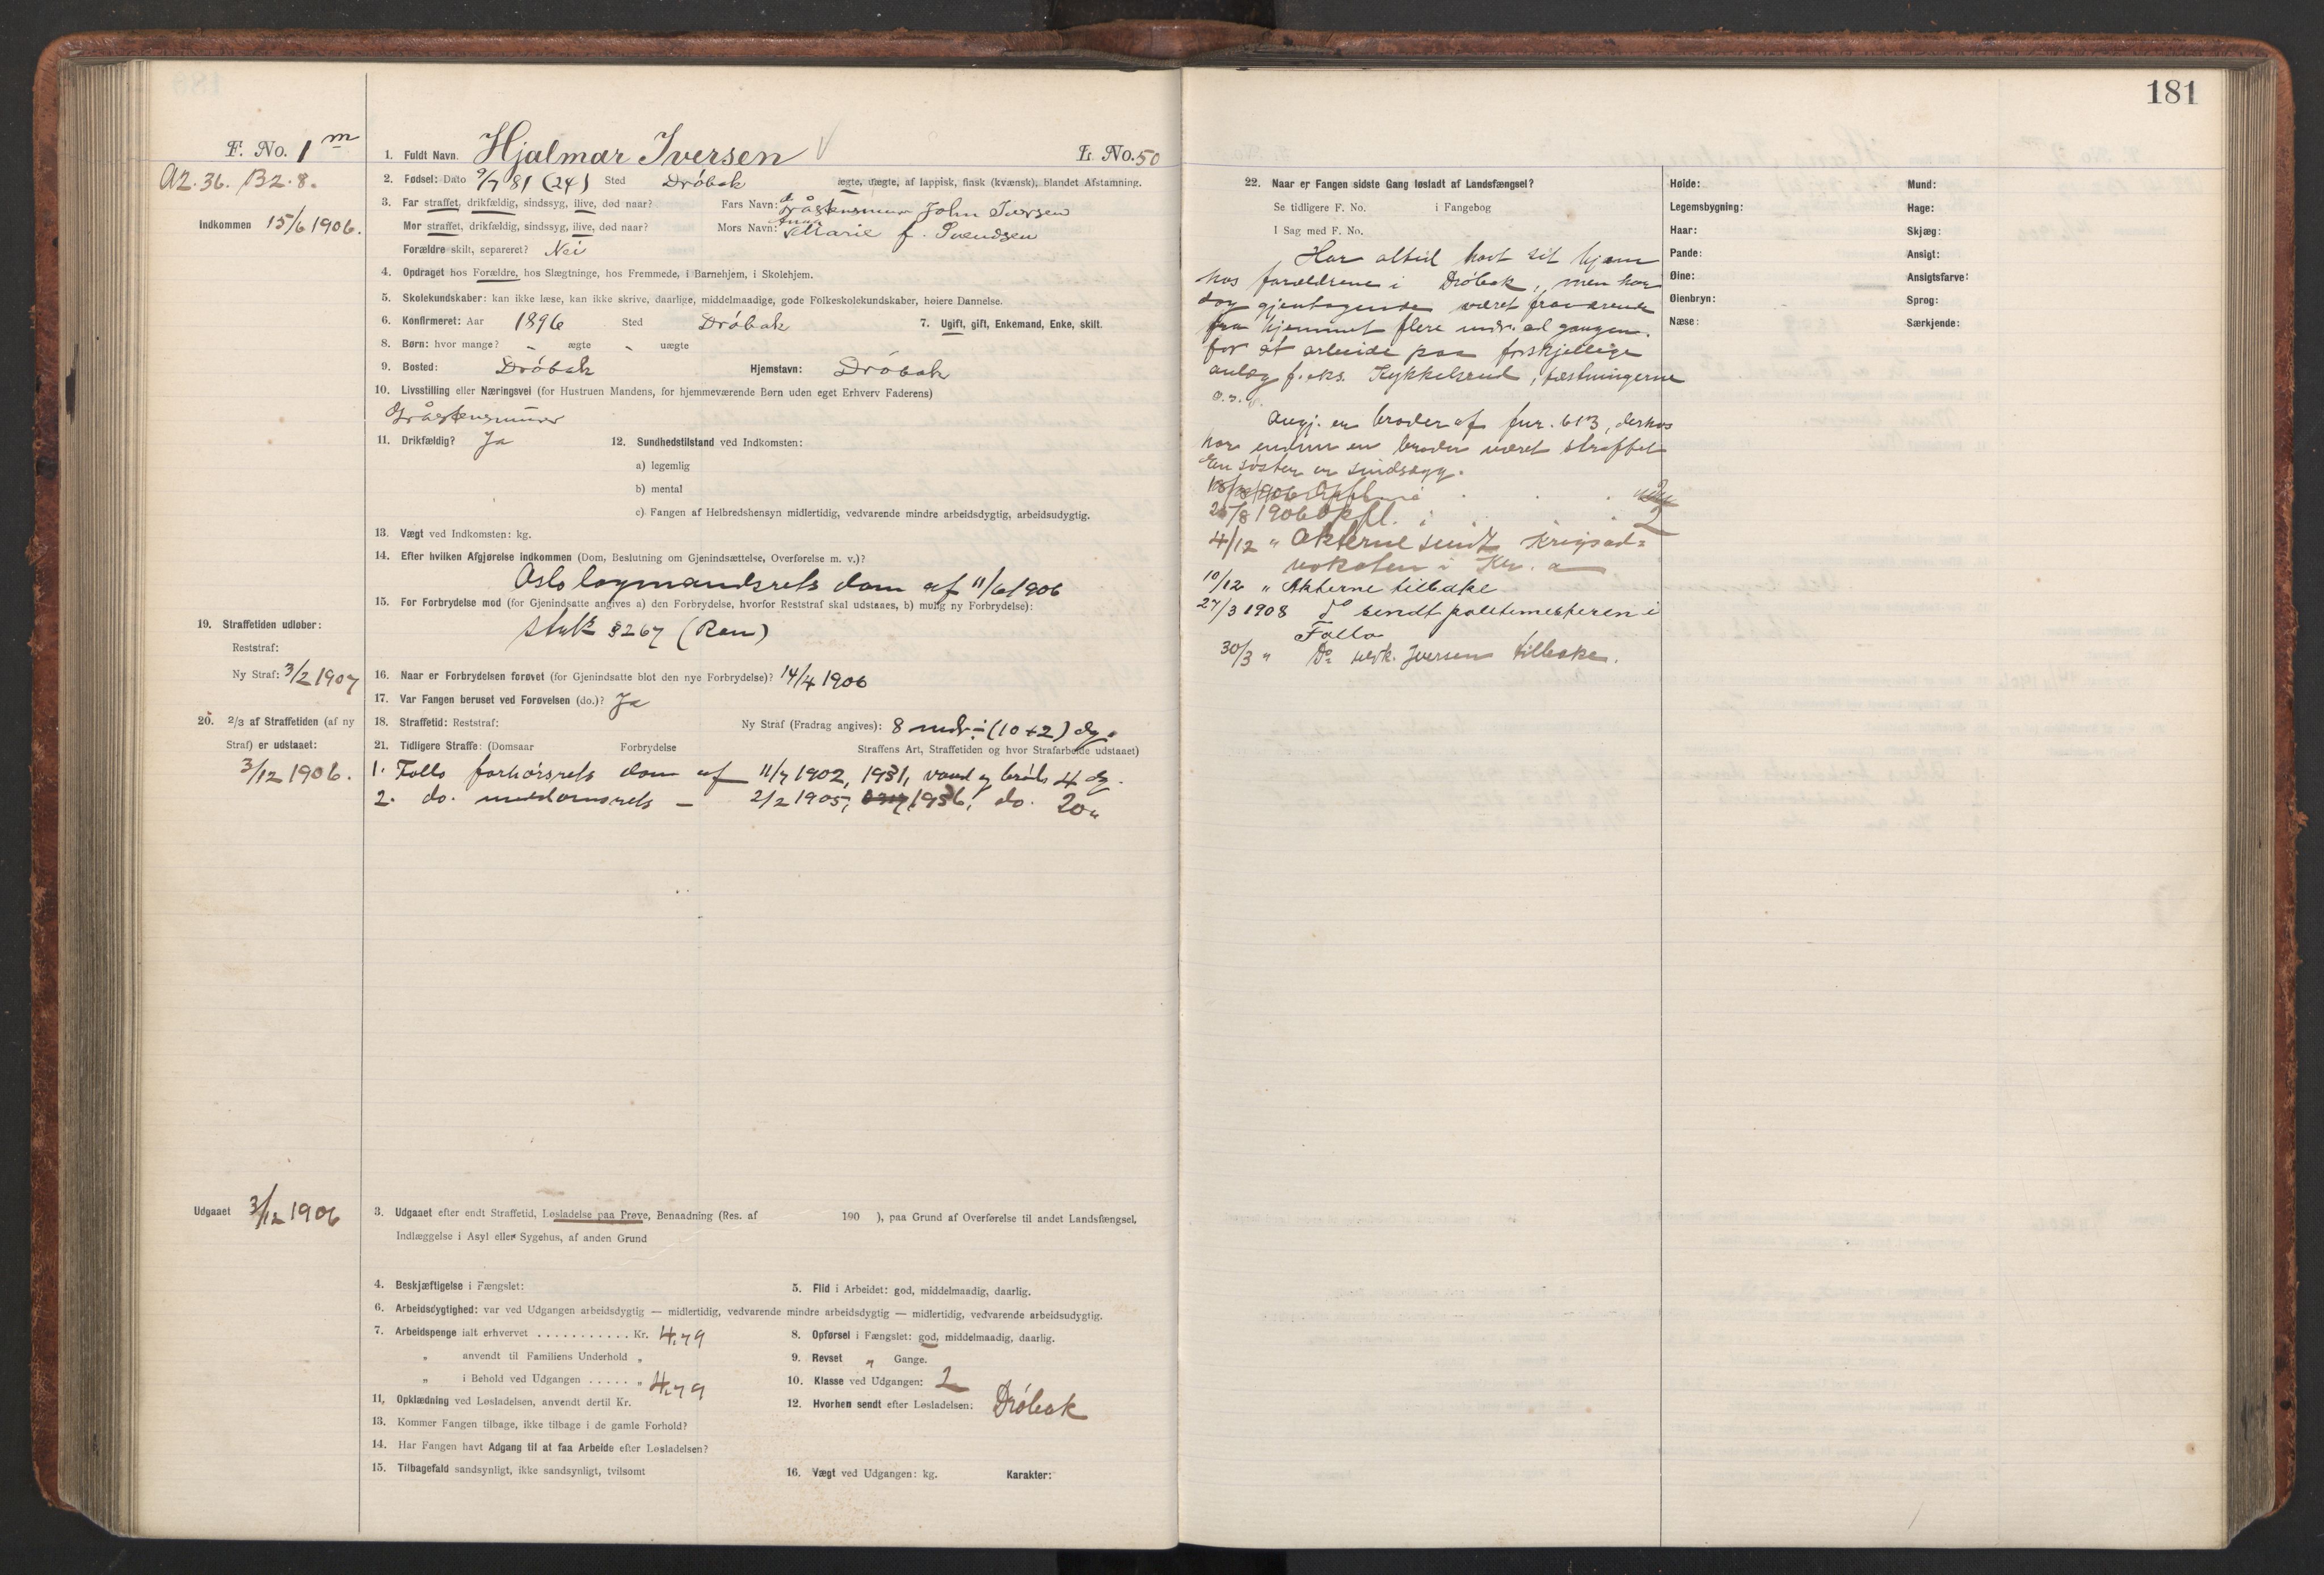 181
F. No. 1 m
A2. 36. B2. 8.
Indkommen 15/6 1906.
1. Fuldt Navn. Hjalmar Iversen V L. No. 50
2. Fødsel: Dato 9/7 81 (24) Sted Drøbak ægte, uægte, af lappisk, finsk (kvænsk), blandet Afstamning.
3. Far straffet, drikfældig, sindssyg, ilive, død naar? Fars Navn: Gråstensminer John Iversen
Mor straffet, drikfældig, sindssyg, ilive, død naar? Mors Navn: Anna Marie f. Svendsen
Forældre skilt, separeret? Nei
4. Opdraget hos Forældre, hos Slægtninge, hos Fremmede, i Barnehjem, i Skolehjem.
5. Skolekundskaber: kan ikke læse, kan ikke skrive, daarlige, middelmaadige, gode Folkeskolekundskaber, høiere Dannelse.
6. Konfirmeret: Aar 1896 Sted Drøbak 7. Ugift, gift, Enkemand, Enke, skilt.
8. Børn: hvor mange? - ægte - uægte
9. Bosted: Drøbak Hjemstavn: Drøbak
10. Livsstilling eller Næringsvei (for Hustruen Mandens, for hjemmeværende Børn uden eget Erhverv Faderens)
Gråstensminer
11. Drikfældig? Ja 12. Sundhedstilstand ved Indkomsten:
a) legemlig
b) mental
c) Fangen af Helbredshensyn midlertidig, vedvarende mindre arbeidsdygtig, arbeidsudygtig.
13. Vægt ved Indkomsten: kg.
14. Efter hvilken Afgjørelse indkommen (Dom, Beslutning om Gjenindsættelse, Overførelse m. v.)?
Oslo lagmandsrets dom af 11/6 1906
15. For Forbrydelse mod (for Gjenindsatte angives a) den Forbrydelse, hvorfor Reststraf skal udstaaes, b) mulig ny Forbrydelse):
§ 267 (Ran)
19. Straffetiden udløber:
Reststraf:
Ny Straf: 3/2 1907
16. Naar er Forbrydelsen forøvet (for Gjenindsatte blot den nye Forbrydelse)? 14/4 1906
17. Var Fangen beruset ved Forøvelsen (do.)? Ja
20. 2/3 af Straffetiden (af ny Straf) er udstaaet:
3/12 1906.
18. Straffetid: Reststraf: Ny Straf (Fradrag angives): 8 mdr ÷ (10+2) dg.
21. Tidligere Straffe: (Domsaar Forbrydelse Straffens Art, Straffetiden og hvor Strafarbeide udstaaet)
1. Follo forhørsrets dom af 11/7 1902, 1931, vand og brød 4 dg.
2. do. meddomsrets - 2/2 1905, 1936, do. 20 "
Udgaaet 3/12 1906
3. Udgaaet efter endt Straffetid, Løsladelse paa Prøve, Benaadning (Res. af 190 ), paa Grund af Overførelse til andet Landsfængsel,
Indlæggelse i Asyl eller Sygehus, af anden Grund
4. Beskjæftigelse i Fængslet: 5. Flid i Arbeidet: god, middelmaadig, daarlig.
6. Arbeidsdygtighed: var ved Udgangen arbeidsdygtig — midlertidig, vedvarende mindre arbeidsdygtig — midlertidig, vedvarende arbeidsudygtig.
7. Arbeidspenge ialt erhvervet . . . . . . . . . . . Kr. 4.79 8. Opførsel i Fængslet: god, middelmaadig, daarlig.
„ anvendt til Familiens Underhold „ 9. Revset „ Gange.
„ i Behold ved Udgangen . . . . . „ 4.79 10. Klasse ved Udgangen: 2
11. Opklædning ved Løsladelsen, anvendt dertil Kr. 12. Hvorhen sendt efter Løsladelsen: Drøbak
13. Kommer Fangen tilbage, ikke tilbage i de gamle Forhold?
14. Har Fangen havt Adgang til at faa Arbeide efter Løsladelsen?
15. Tilbagefald sandsynligt, ikke sandsynligt, tvilsomt 16. Vægt ved Udgangen: kg. Karakter:
22. Naar er Fangen sidste Gang løsladt af Landsfængsel?
Se tidligere F. No. i Fangebog
I Sag med F. No.
Har altid havt sit hjem
hos forældrene i Drøbak, men har
dog gjentagende været fraværende
fra hjemmet flere mdr. ad gangen
for at arbeide paa forskjellige
anlæg f. eks. Kykkelsrud, fæstningerne
o.s.v.
Angj. er broder af fnr. 613, derhos
har endnu en broder været straffet
En søster er sindssyg.
18/8 1906 Opfl. i
20/8 1906 Opfl. i . . 2
4/12 " Akterne sendt Krigsad=
vokaten i Kr. a
10/12 " Akterne tilbake
27/3 1908 do sendt politimesteren i
Follo
30/3 " Do vedk. Iversen tilbake.
Høide: Mund:
Legemsbygning: Hage:
Haar: Skjæg:
Pande: Ansigt:
Øine: Ansigtsfarve:
Øienbryn: Sprog:
Næse: Særkjende: